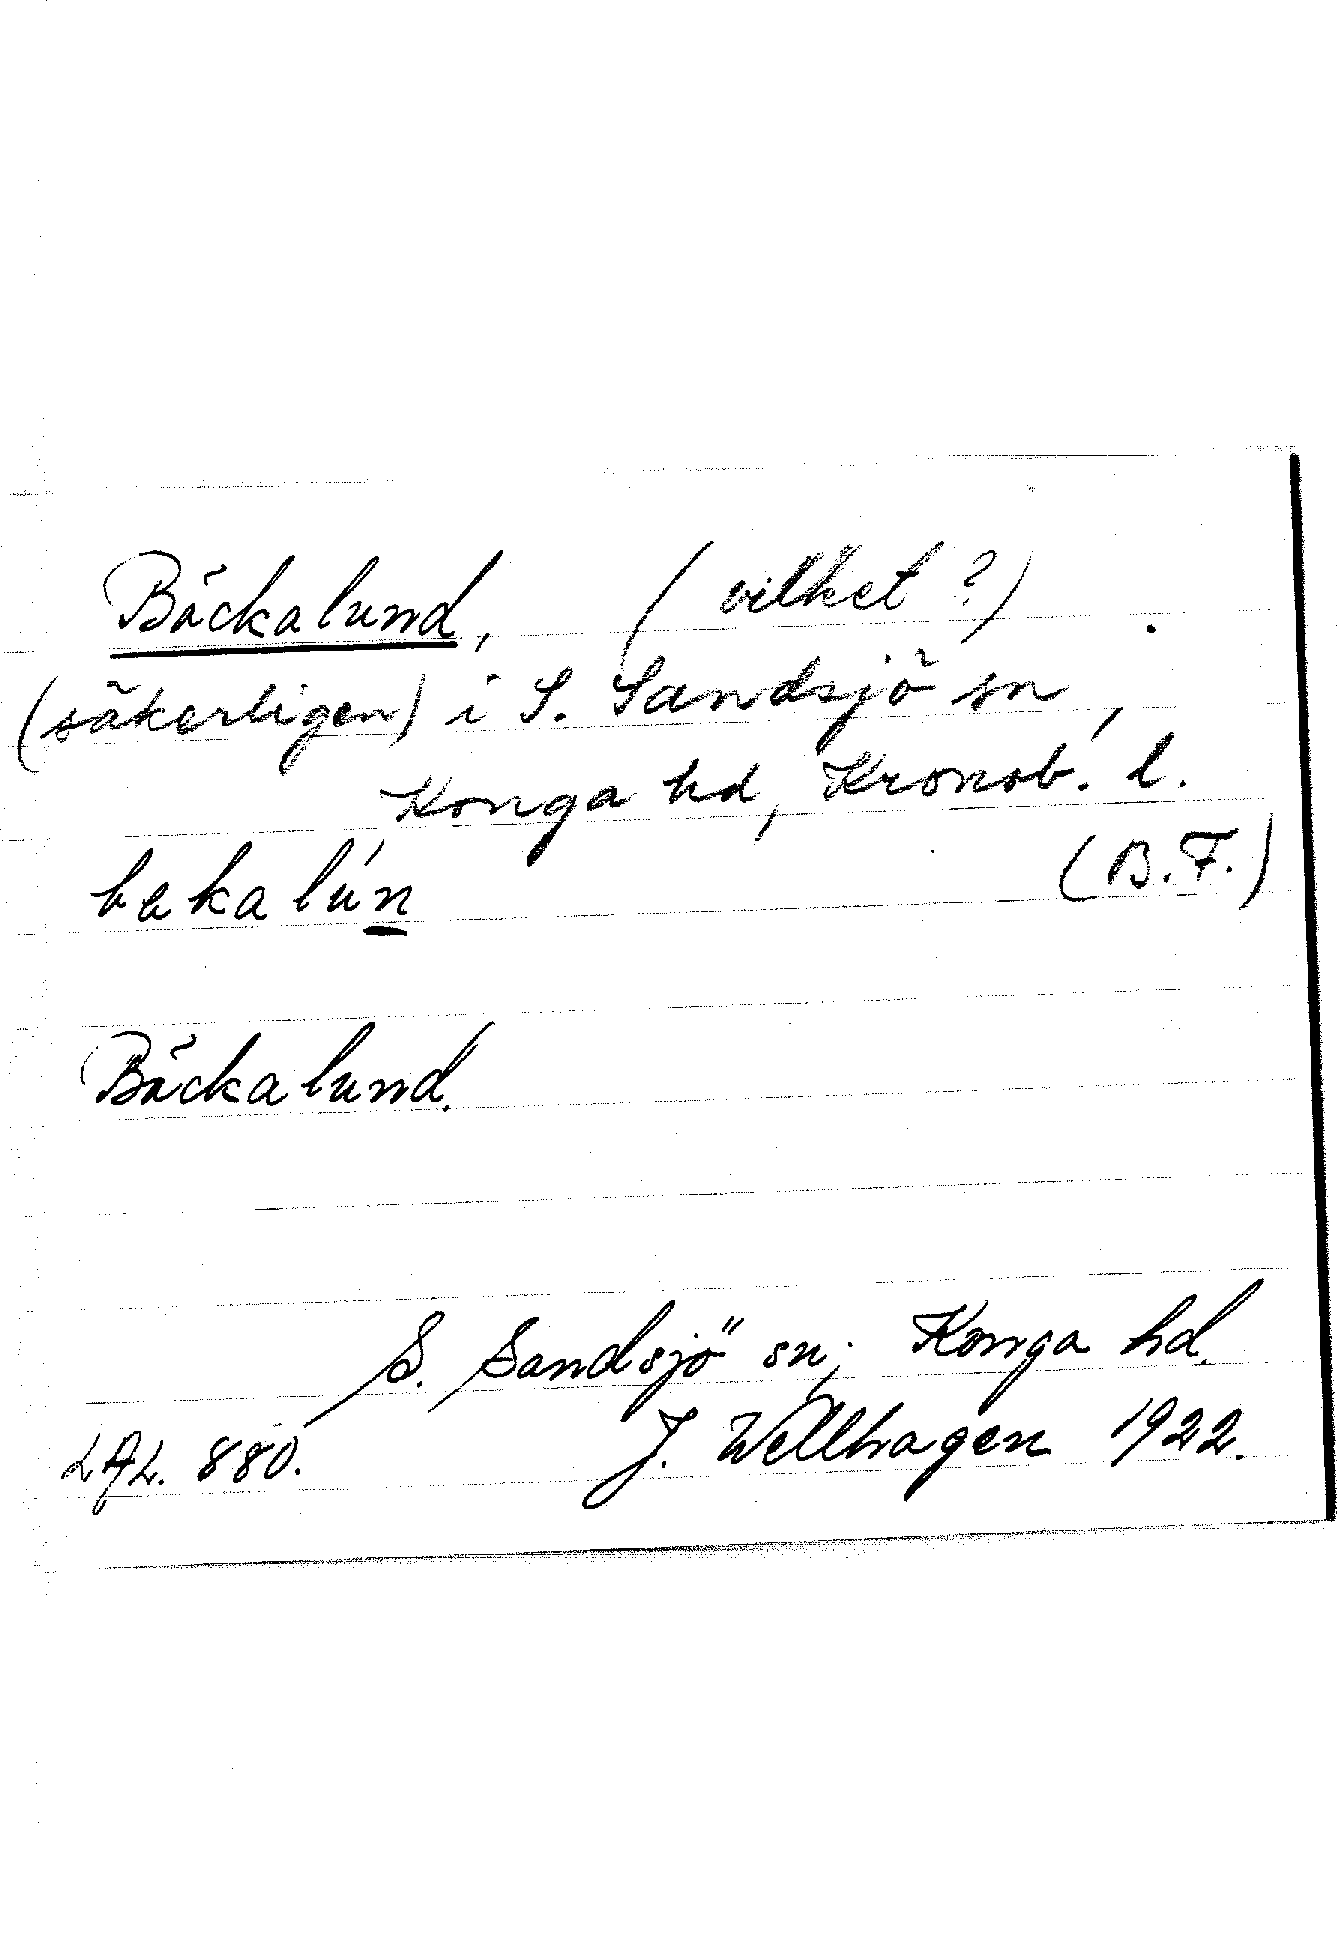 Bäckalund, (vilket?)
(säkerligen) i S. Sandsjö sn,
Konga hd, Kronob. l.
(B.F.)
bekalún
Bäckalund.
S. Sandsjö sn; Konga hd.
LAL. 880. J. Wellhagen 1922.